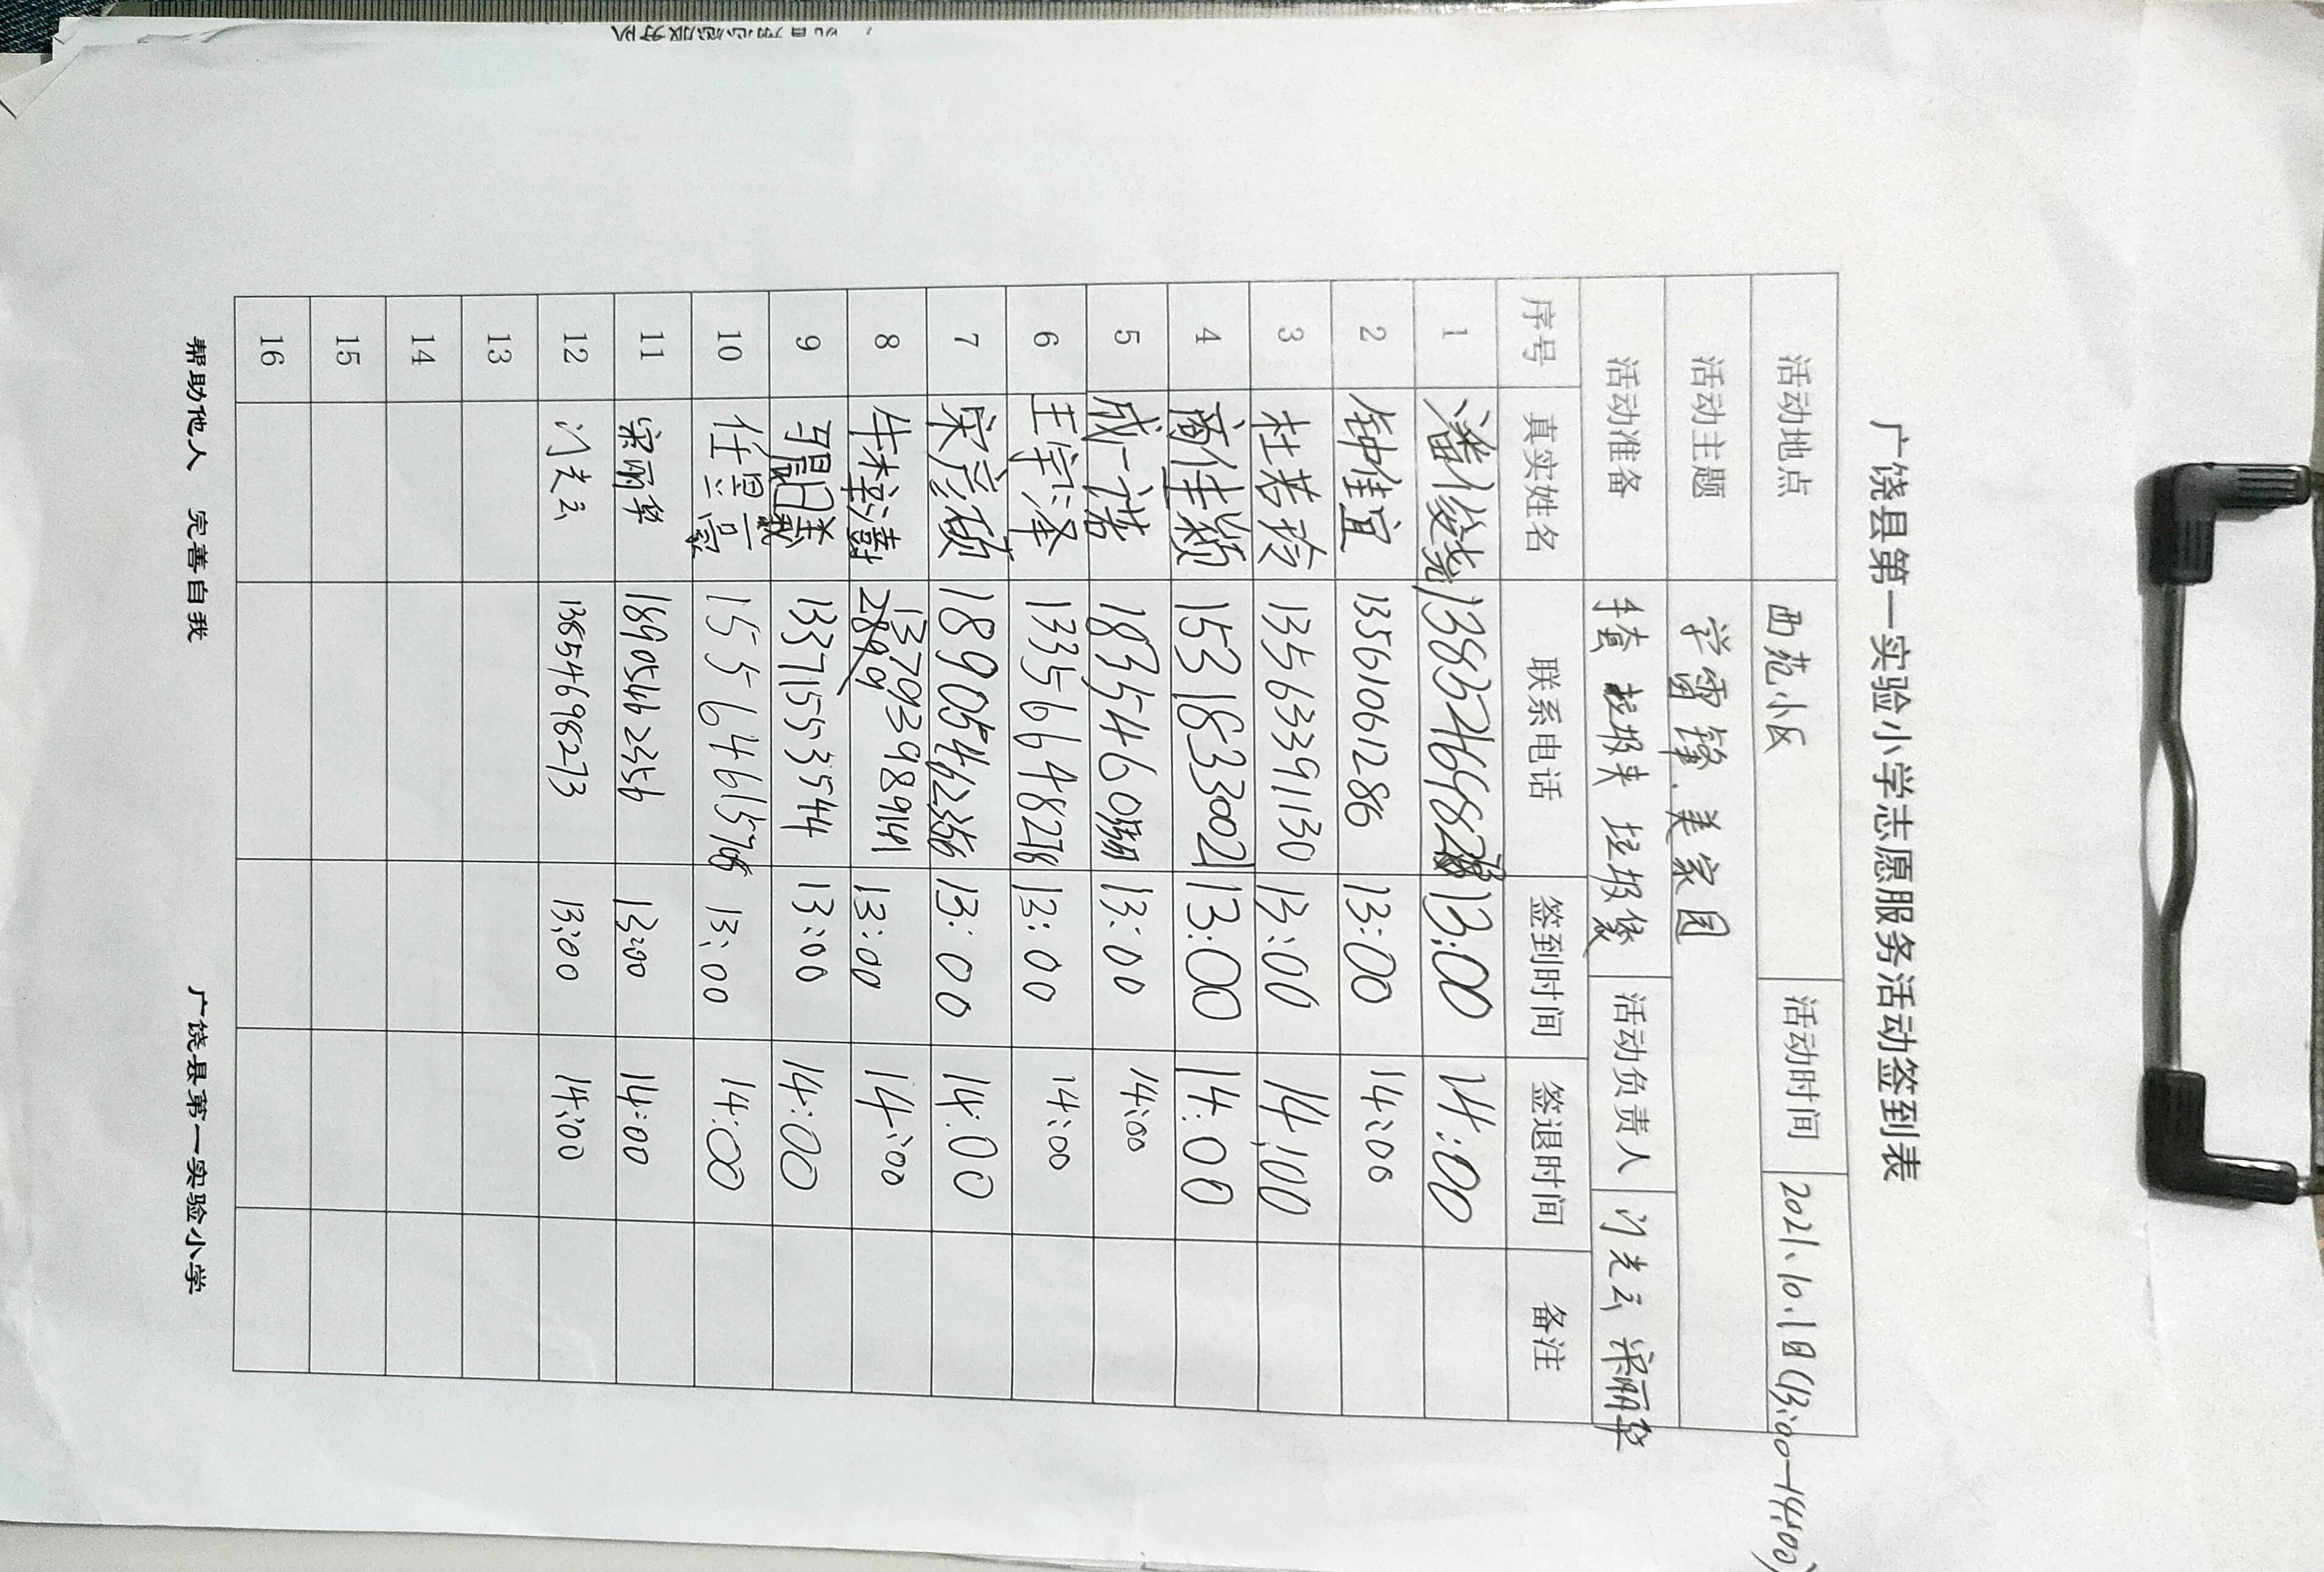 广饶县第一实验小学志愿服务活动签到表
活动地点 西苑小区 活动时间 2021.10.1日(13:00-14:00)
活动主题 学雷锋.美家园
活动准备 手套 垃圾夹 垃圾袋 活动负责人 门光云 宋丽华
序号 真实姓名 联系电话 签到时间 签退时间 备注
1 潘俊尧 13:00 14:00
2 钟佳宜 13561061286 13:00 14:00
3 杜若玲 13563391130 13:00 14:00
4 商佳颖 15318333002 13:00 14:00
5 成一诺 13:00 14:00
6 王宇泽 13356648278 13:00 14:00
7 宋彦硕 18905462356 13:00 14:00
8 13793989141 13:00 14:00
9 13371553544 13:00 14:00
10 13:00 14:00
11 宋丽华 18905462356 13:00 14:00
12 门光云 13854698273 13:00 14:00
13
14
15
16
帮助他人 完善自我 广饶县第一实验小学